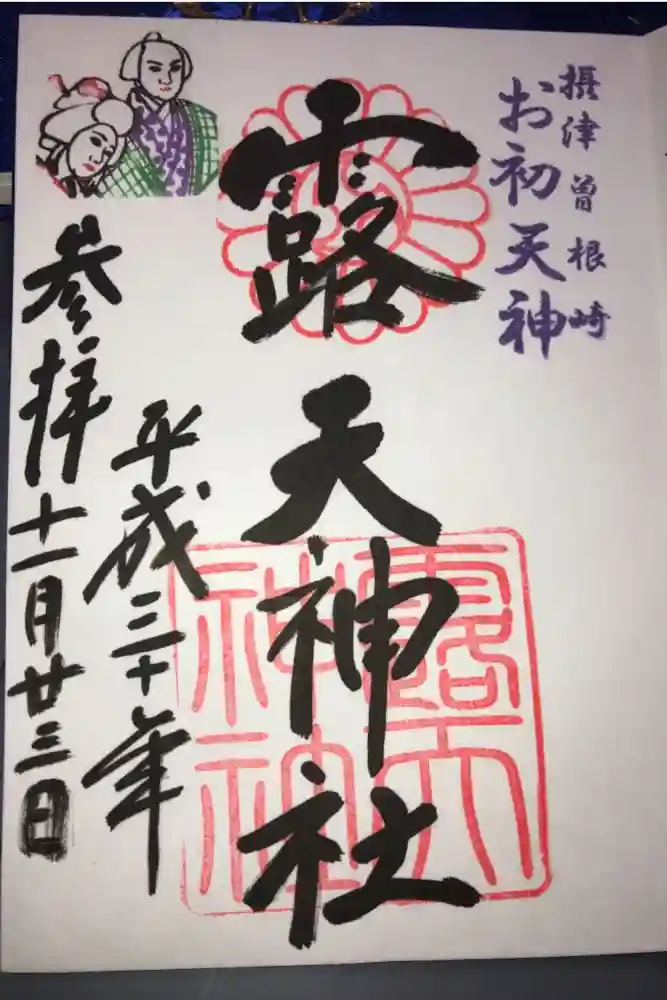 摂津曽根崎
お初天神
露天神社
平成三十年
参拝十一月廿三日
露天
神社